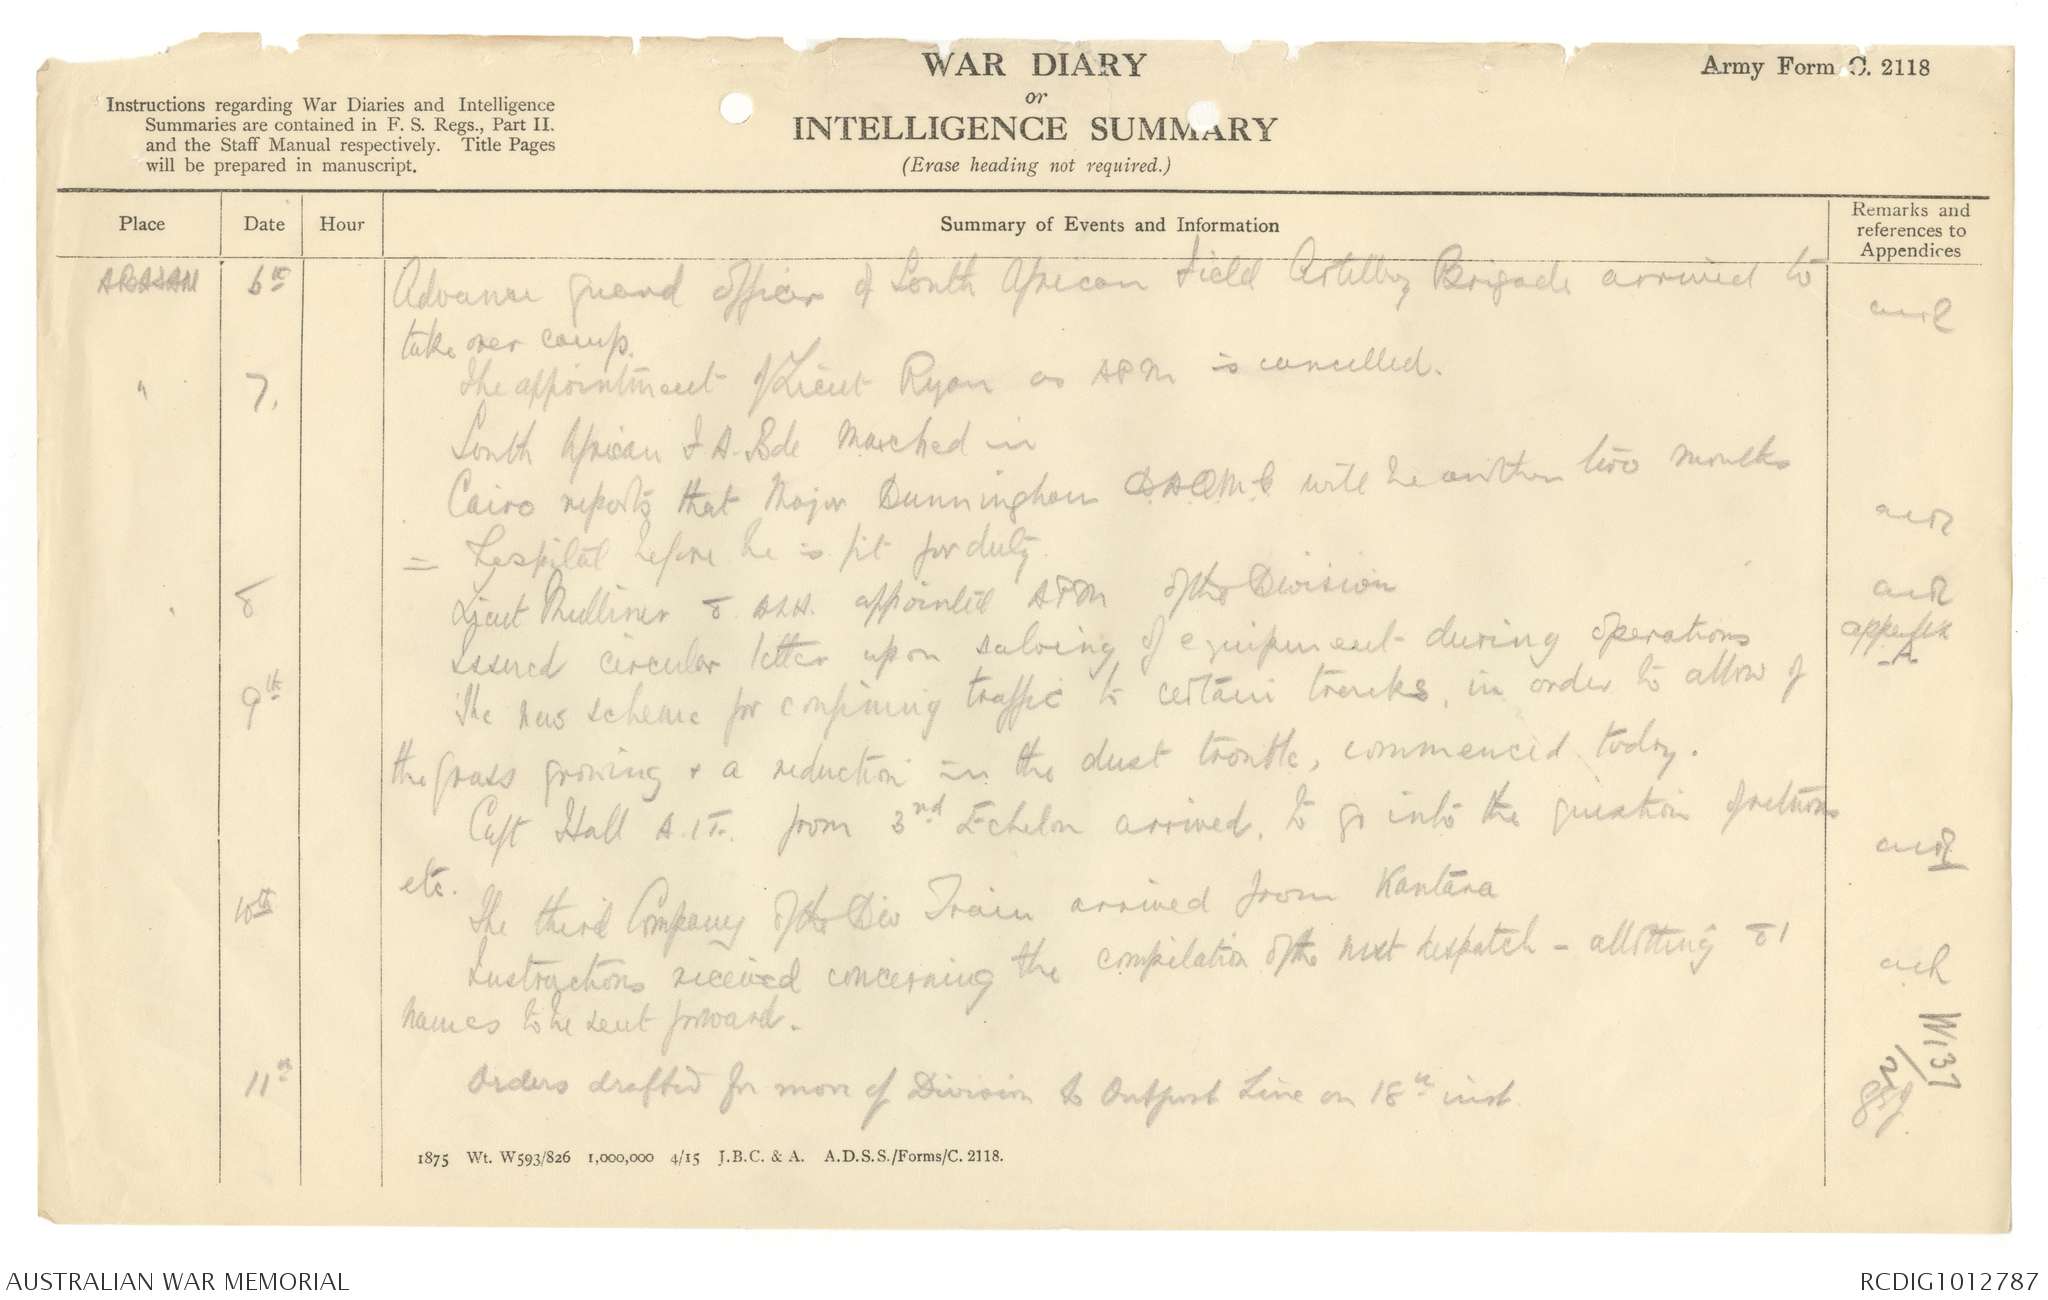 WAR DIARY
or
INTELLIGENCE SUMMARY
(Erase heading not required.)
Army Form C. 2118
Instructions regarding War Diaries and Intelligence
Summaries are contained in F. S. Regs., Part II.
and the Staff Manual respectively. Title Pages
will be prepared in manuscript.
Place Date Hour Summary of Events and Information Remarks and references to Appendices
6th Advance guard officer of South African Field Artillery Brigade arrived to
take over camp.
" 7. The appointment of Lieut Ryan as APM is cancelled.
South African F A. Bde marched in
Cairo reports that Major Dunningham will be another two months
= hospital before he is fit for duty.
8 Lieut Mulliner 8 ALH. appointed APM of the Division
Issued circular letter upon salving of equipment during operations appendix A
9th The new scheme for confining traffic to certain tracks, in order to allow of
the grass growing & a reduction in the dust trouble, commenced today.
Capt Hall from 3rd Echelon arrived, to go into the question of returns
etc.
10th The third Company of the Div Train arrived from Kantara
Instructions received concerning the compilation of the next despatch - allotting 81
names to be sent forward.
11th Orders drafted for move of Division to Outpost Line on 18th inst.
W137
/2
1875 Wt. W593/826 1,000,000 4/15 J.B.C. & A. A.D.S.S./Forms/C. 2118.
AUSTRALIAN WAR MEMORIAL
RCDIG1012787